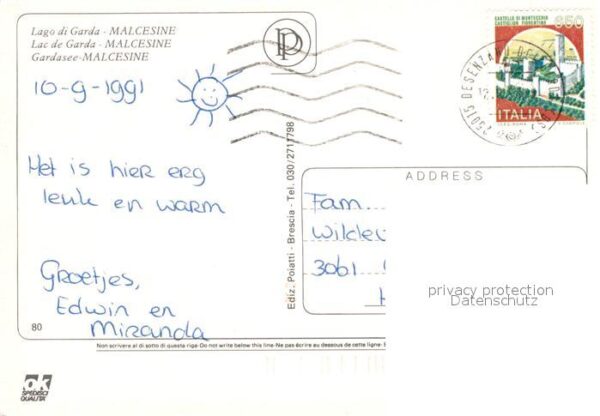 Lago di Garda - MALCESINE
Lac de Garda - MALCESINE
Gardasee-MALCESINE
10-9-1991
Het is hier erg
leuk en warm
Groetjes,
Edwin en
Miranda
80
Ediz. Poiatti - Brescia - Tel. 030/2711798
CASTELLO DI MONTECCHIO
CASTIGLION FIORENTINO
650
ITALIA
25015 DESENZANO DEL
ADDRESS
Fam.
3061
privacy protection
Datenschutz
Non scrivere al di sotto di questa riga-Do not write below this line-Ne pas écrire au dessous de cette ligne-
ok
SPEDISCI
QUALITA'